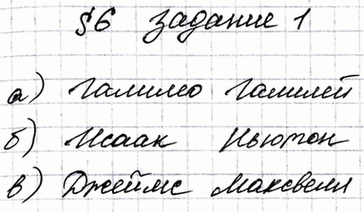 §6 задание 1
а) Галилео Галилей
б) Исаак Ньютон
в) Джеймс Максвелл